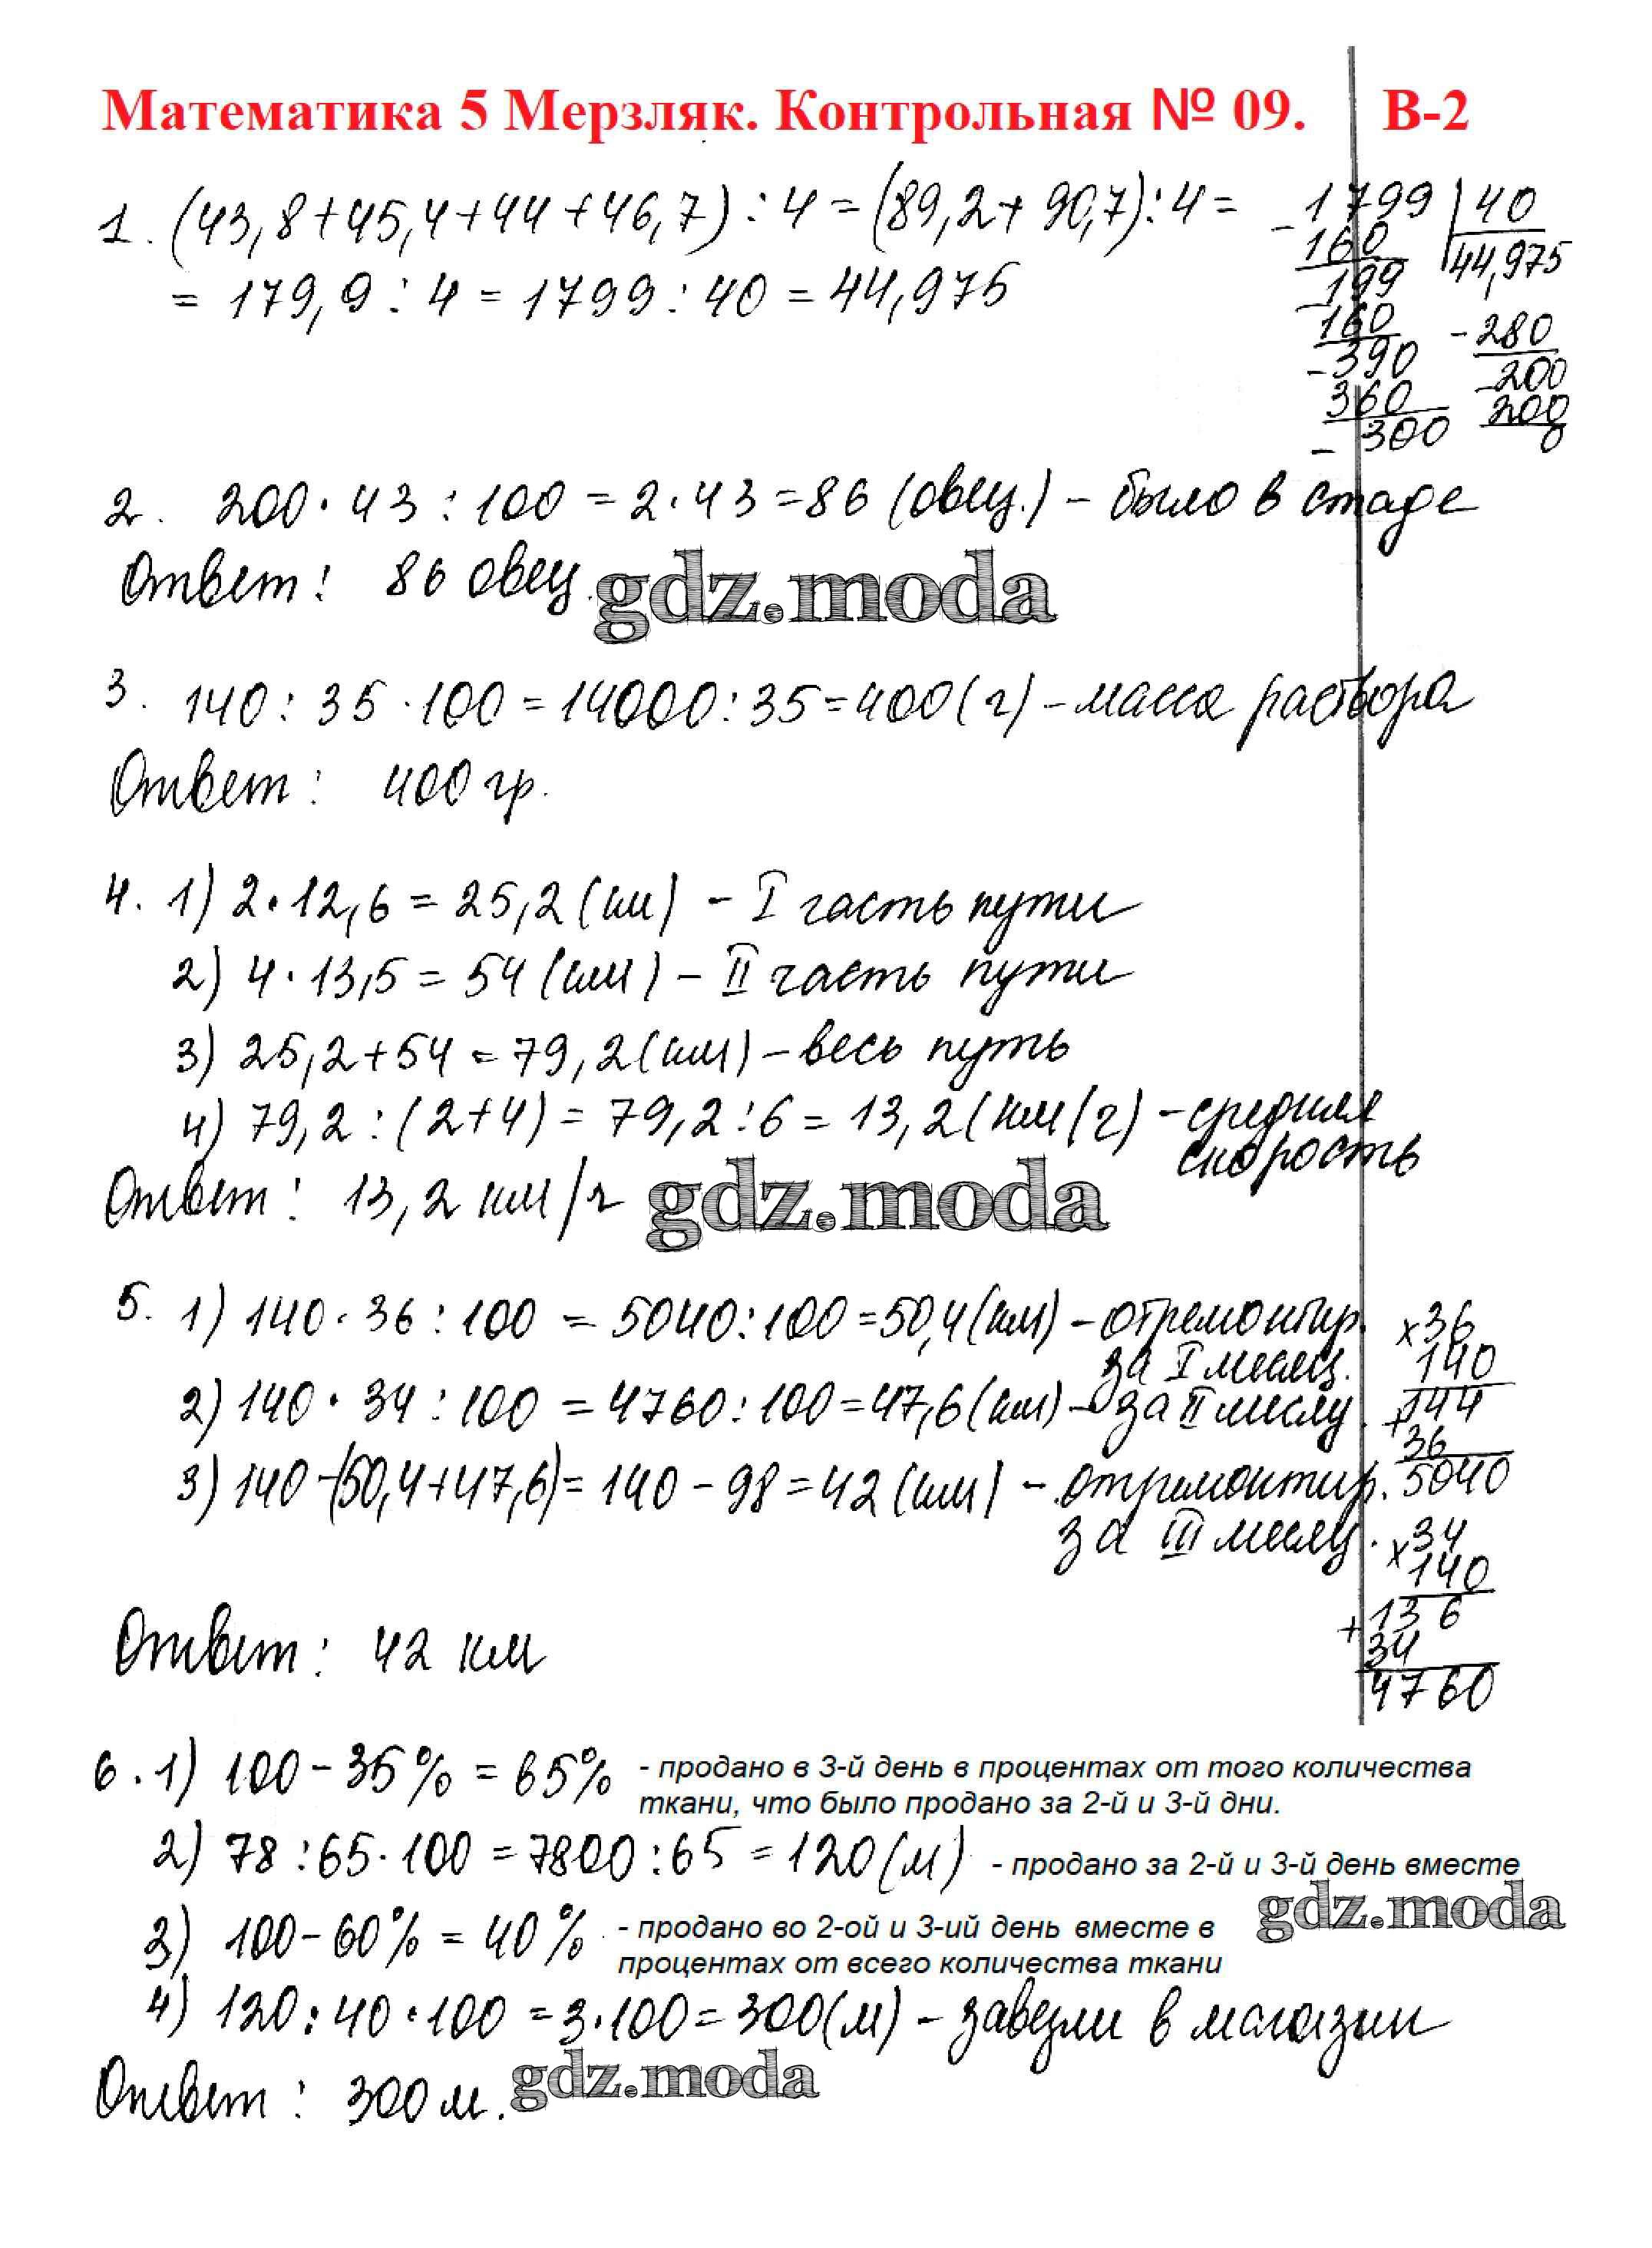 Математика 5 Мерзляк. Контрольная № 09. В-2
1. (43,8+45,4+44+46,7):4=(89,2+90,7):4=
= 179,9:4=1799:40=44,975
- 1799 | 40
160 44,975
- 199
160 - 280
- 390 - 200
360 200
- 300 0
2. 200·43:100=2·43=86 (овец.) – было в стаде
Ответ: 86 овец.
gdz.moda
3. 140:35·100=14000:35=400(г) – масса раствора
Ответ: 400 гр.
4. 1) 2·12,6=25,2(км) – I часть пути
2) 4·13,5=54(км) – II часть пути
3) 25,2+54=79,2(км) – весь путь
4) 79,2:(2+4)=79,2:6=13,2(км/ч) – средняя
скорость
Ответ: 13,2 км/ч
gdz.moda
5. 1) 140·36:100=5040:100=50,4(км) – отремонтир.
за I месяц.
2) 140·34:100=4760:100=47,6(км) – за II месяц.
3) 140-(50,4+47,6)=140-98=42(км) – отремонтир.
за III месяц.
x36
140
+144
36
5040
x34
140
+136
34
4760
Ответ: 42 км
6. 1) 100-35%=65% - продано в 3-й день в процентах от того количества
ткани, что было продано за 2-й и 3-й дни.
2) 78:65·100=7800:65=120(м) - продано за 2-й и 3-й день вместе
gdz.moda
3) 100-60%=40% - продано во 2-ой и 3-ий день вместе в
процентах от всего количества ткани
4) 120:40·100=3·100=300(м) – завезли в магазин
Ответ: 300м.
gdz.moda